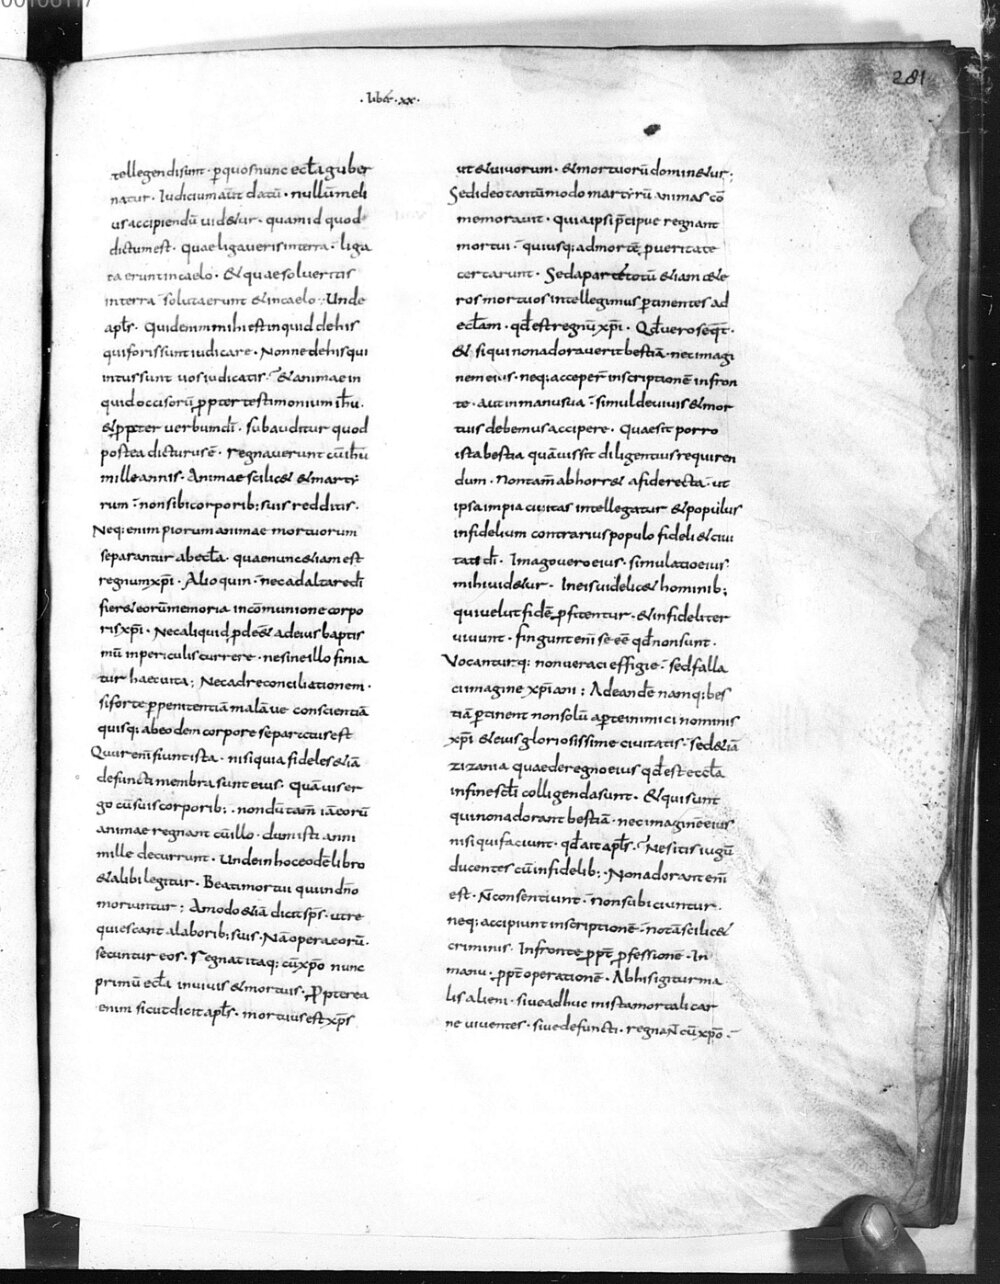 00100117
281
· liber · xx ·
tellegendi sunt · p quos nunc eccła guber
natur · Iudicium aūt datū · nullū meli
us accipiendū uidetur · quam id quod
dictum est · quae ligaueris in terra · liga
ta erunt in caelo · Et quae solueritis
in terra soluta erunt et in caelo · Unde
apłs · Quid enim mihi est inquid de his
qui foris sunt iudicare · Nonne de his qui
intus sunt uos iudicatis · Et animae in
quid occisorū ppter testimonium ihū ·
et ppter uerbum dī · subauditur quod
postea dicturus ē · regnauerunt cū ihū
mille annis · Animae scilicet et marty
rum · non sibi corporib; suis redditis ·
Neq; enim piorum animae mortuorum
separantur ab eccła · quae nunc etiam est
regnum xpī · Alioquin · nec ad altare dī
fieret eorū memoria in cōmunione corpo
ris xpī · Nec aliquid pdeēt ad eius baptis
mū in periculis currere · ne sine illo finia
tur haec uita ; Nec ad reconciliationem ·
si forte p penitentiā malāue conscientiā
quisq; ab eodem corpore separatus est
Quur enī fiunt ista · nisi quia fideles etiā
defuncti membra sunt eius · Quāuis er
go cū suis corporib; · nondū tam̄ iā eorū
animae regnant cū illo · dum isti anni
mille decurrunt · Unde in hoc eodē libro
et alibi legitur · Beati mortui qui in dno
moriuntur ; Amodo etiā dicit sps · ut re
quiescant a laborib; suis · Nā opera eorū ·
secuntur eos · regnat itaq; cū xpo nunc
primū eccła in uiuis et mortuis · Ppterea
enim sicut dicit apłs · mortuus est xps
ut et uiuorum · et mortuorū dominetur ;
Sed ideo tantūmodo martyrū animas cō
memorauit · quia ipsi pcipue regnant
mortui · qui usq; ad mortē p ueritate
certarunt · Sed a parte totū etiam cete
ros mortuos intellegimus ptinentes ad
ecclam · qd est regnū xpī · Qd uero seqt ·
et si qui non adorauerit bestiā · nec imagi
nem eius · neq; acceper inscriptionē in fron
te · aut in manu sua · simul de uiuis et mor
tuis debemus accipere · Quae sit porro
ista bestia quāuis sit diligentius requiren
dum · non tam̄ abhorret a fide recta · ut
ipsa impia ciuitas intellegatur et populus
infidelium contrarius populo fideli et ciui
tati dī · Imago uero eius · simulatio eius
mihi uidetur · In eis uidelicet hominib;
qui uelut fidē pfitentur · et infideliter
uiuunt · fingunt enī se eē qd non sunt ·
Vocanturq; non ueraci effigie · sed falla
ci imagine xpiani ; Ad eandē namq; bes
tiā ptinent non solū apte inimici nominis
xpī et eius gloriosissime ciuitatis · sed etiā
zizania quae de regno eius qd est eccła
in fine scli colligenda sunt · Et qui sunt
qui non adorant bestiā · nec imaginē eius
nisi qui faciunt · qd ait apłs · Ne sitis iugū
ducentes cū infidelib; · Non adorant enī
est · N consentiunt · non subiciuntur ·
neq; accipiunt inscriptionē · notā scilicet
criminis · In fronte ppt pfessionē · In
manu · ppt operationē · Ab his igitur ma
lis alieni · siue adhuc in ista mortali car
ne uiuentes · siue defuncti · regnan̄t cū xpo ·